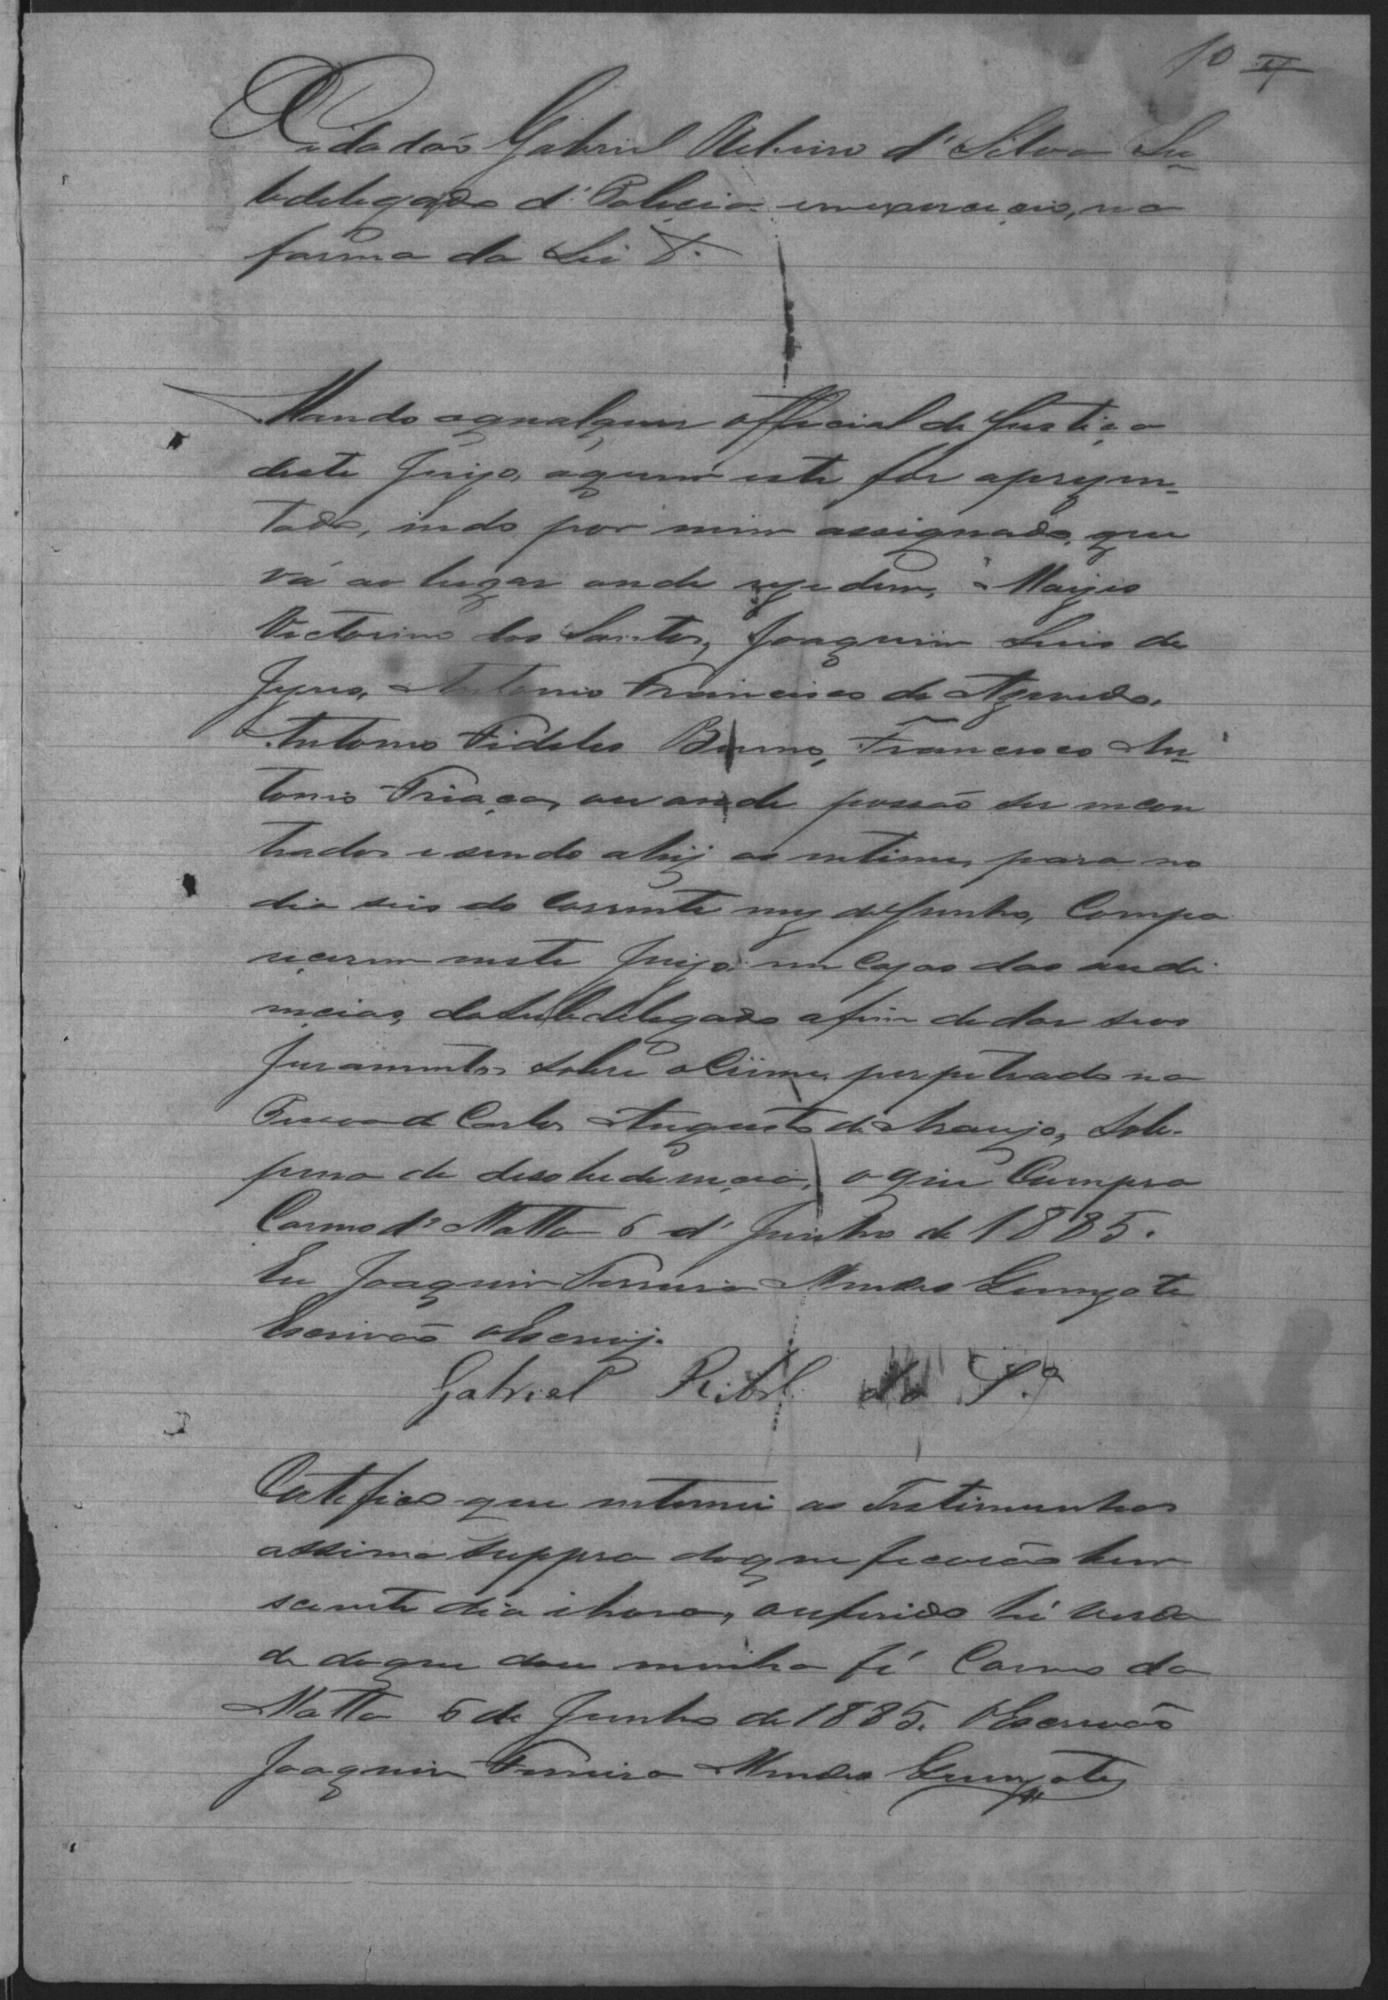 10
Cidadão Gabriel Ribeiro d'Silva Su-
bdelegado d' Policia em exercicio, na
forma da Lei &.
Mando aqualquer official de Justiça
deste Juizo, aquem este fôr aprezen-
tado, indo por mim assignado, que
vá ao lugar onde rezedem,
Victorino dos Santos, Joaquim Luis de
Antonio Francisco de Azevedo,
Antonio Fidelis Bueno, Francisco An-
tonio Friaça, ou aonde possão ser incon
trados e sendo ahij os intime, para no
dia seis do Corrente mez de Junho, Compa
recerem neste Juizo em Cazas das audi
encias, do Subdelegado afim de dar seos
Juramentos sobre o Crime, perpetrado na
Pessoa de Carlos Augusto de Araujo, Sob-
pena de desobediencia, o que Cumpra
Carmo d' Matta 6 d' Junho de 1885.
Eu Joaquim Ferreira Mendes
Escrivão o Escrevij.
Gabriel Ribr.º da S.ª
Certifico que intimei as Testimunhas
assima suppra doque ficarão bem
sciente dia e hora, oreferido hé verda
de doque dou minha fé Carmo da
Matta 6 de Junho de 1885. OEscrivão
Joaquim Ferreira Mendes